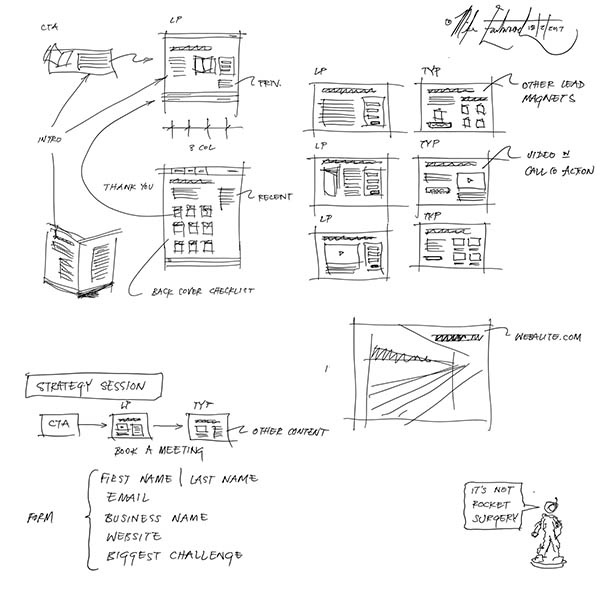 CTA
LP
© Mike Eastwood 18/2/2017
PRIV.
INTRO
3 COL
THANK YOU
RECENT
BACK COVER CHECKLIST
LP
TYP
OTHER LEAD
MAGNETS
LP
TYP
VIDEO
CALL TO ACTION
LP
TYP
WEBALITE.COM
STRATEGY SESSION
CTA
LP
TYP
OTHER CONTENT
BOOK A MEETING
FORM
FIRST NAME | LAST NAME
EMAIL
BUSINESS NAME
WEBSITE
BIGGEST CHALLENGE
IT'S NOT
ROCKET
SURGERY